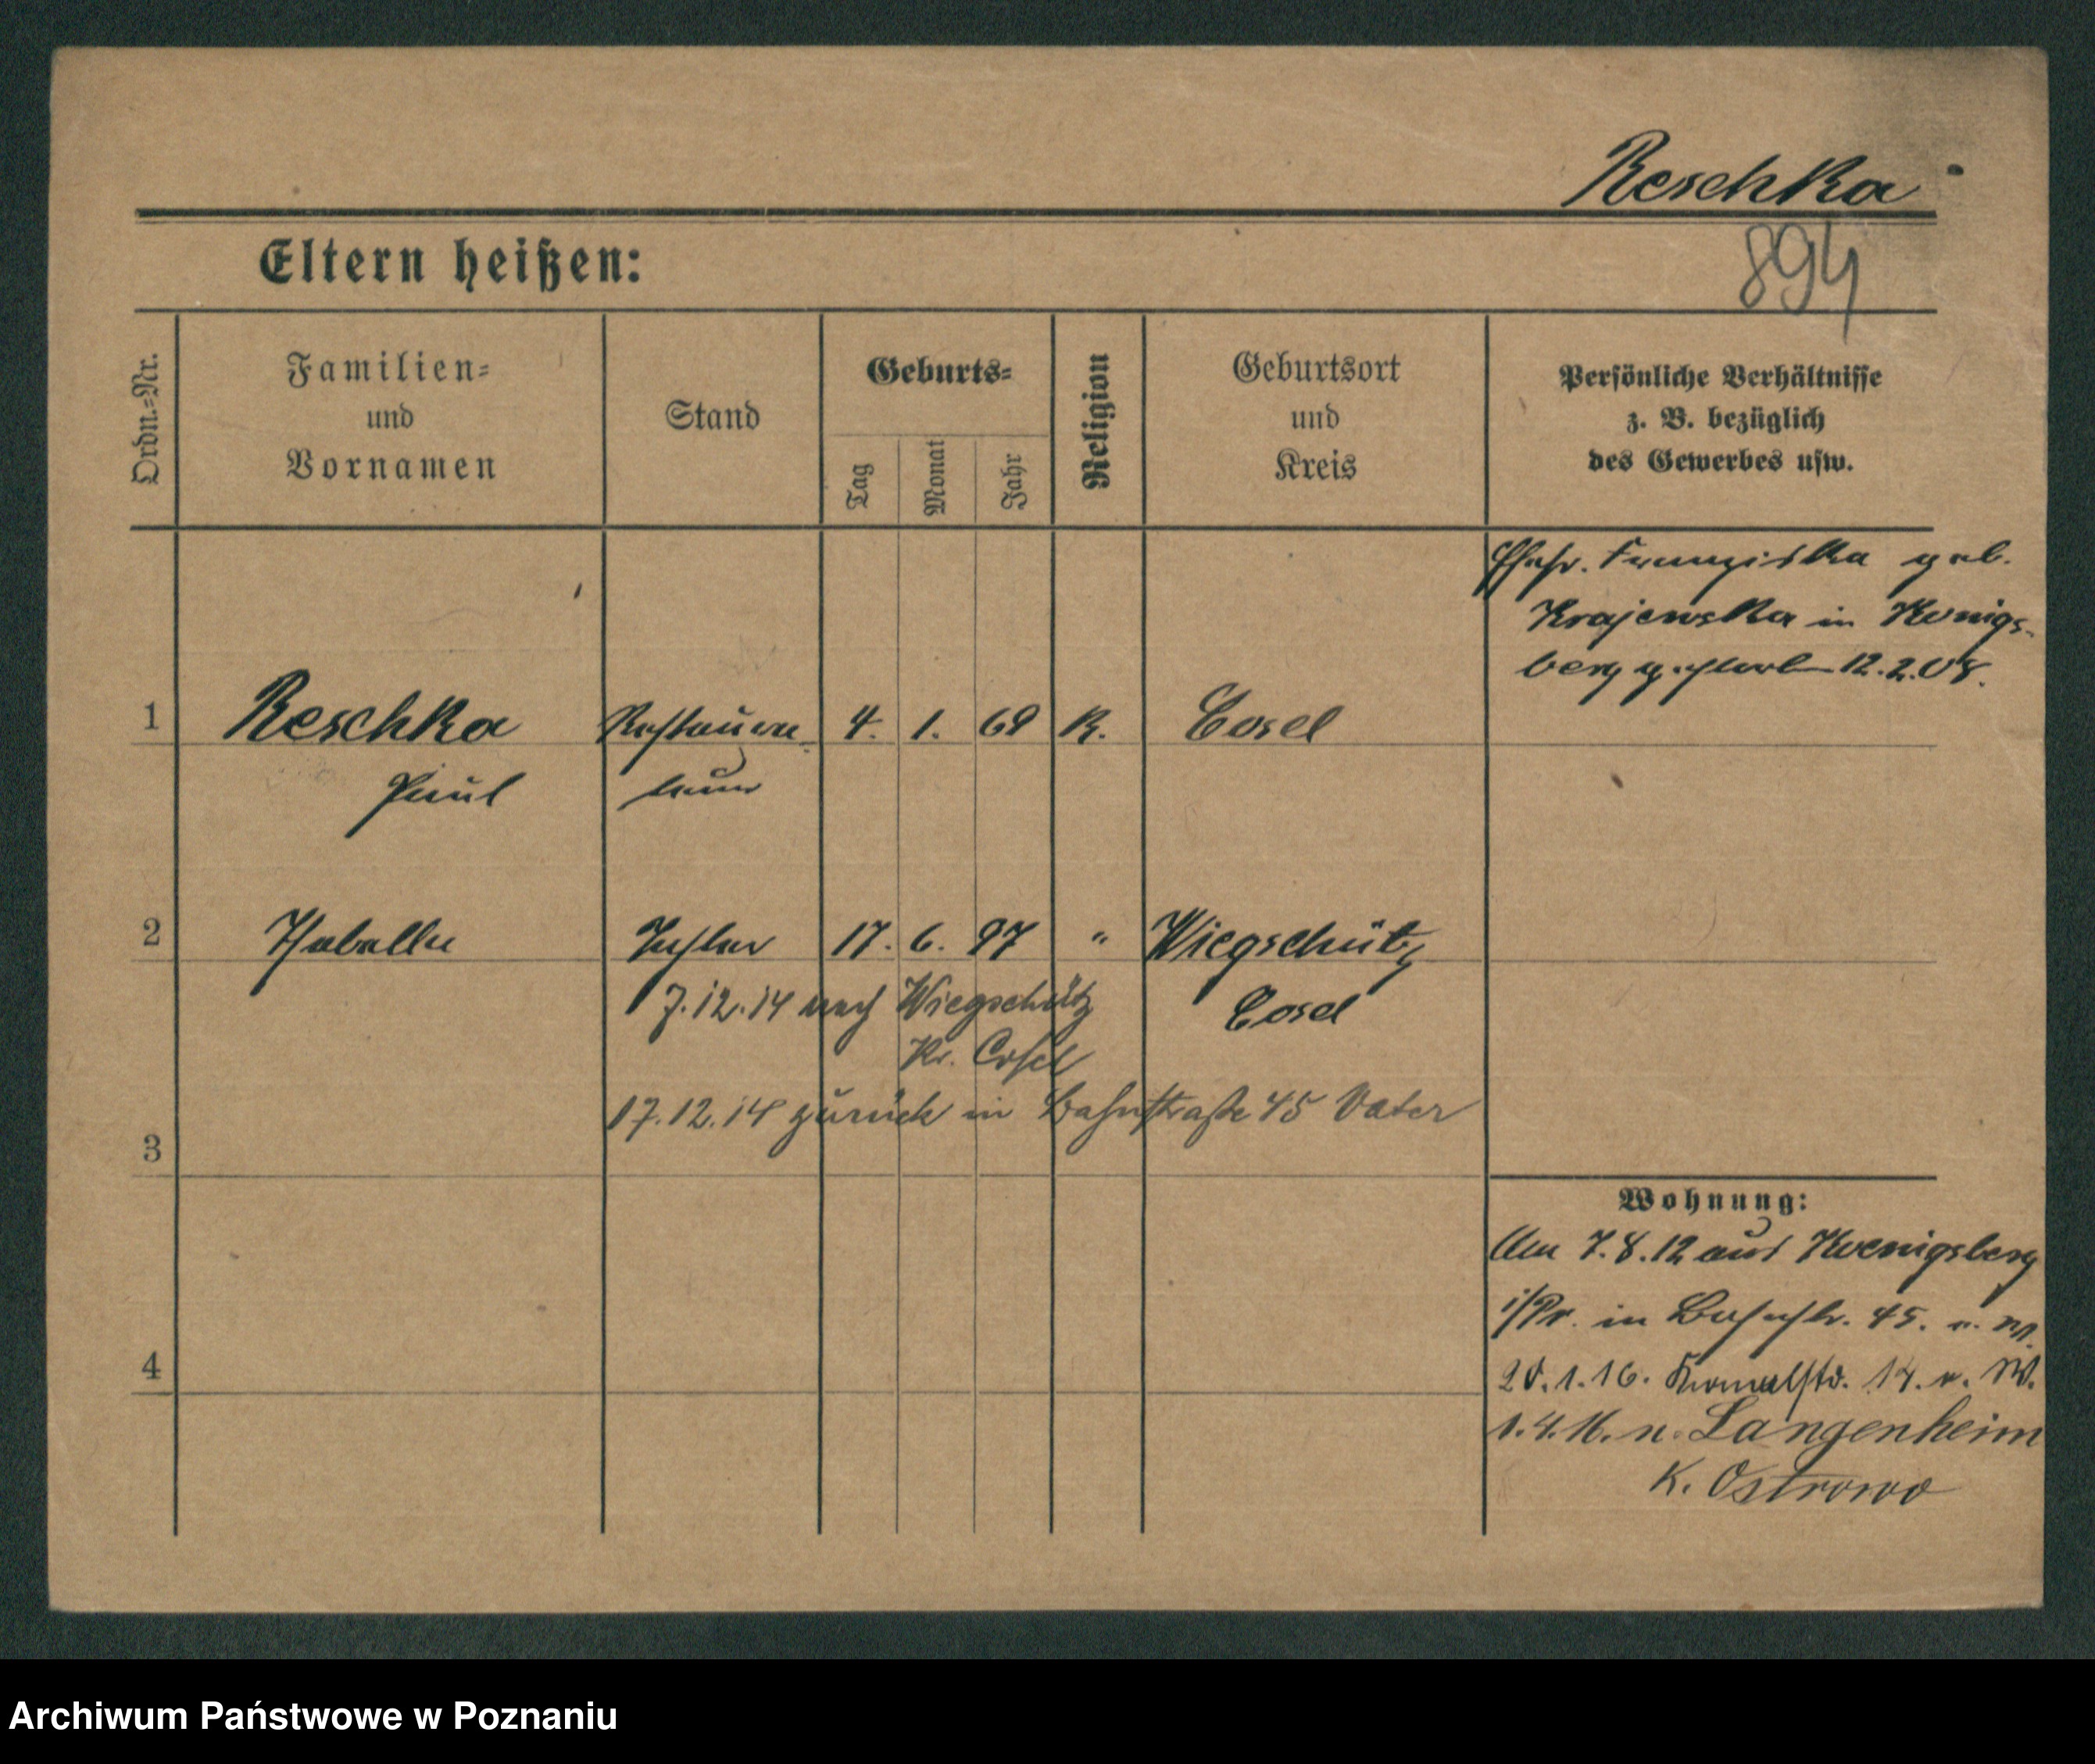 Reschka
894
Eltern heißen:
Ordn.=Nr.
Familien=
und
Vornamen
Stand
Geburts=
Tag
Monat
Jahr
Religion
Geburtsort
und
Kreis
Persönliche Verhältnisse
z. B. bezüglich
des Gewerbes usw.
Ehefr. Franziska geb.
Krajewska in Königs-
berg gestorb 12.2.08.
1 Reschka Restaura- 4. 1. 69 K. Cosel
Paul teur
2 Isabella Tochter 17. 6. 97 " Wiegschütz
7.12.14 nach Wiegschütz Cosel
Kr. Cosel
17.12.14 zurück in Bahnstraße 45 Vater
3
Wohnung:
Am 7.8.12 aus Koenigsberg
i/Pr. in Bahnstr. 45.
4
1.16. 14. v. W.
1.4.16. n. Langenheim
K. Ostrowo
Archiwum Państwowe w Poznaniu